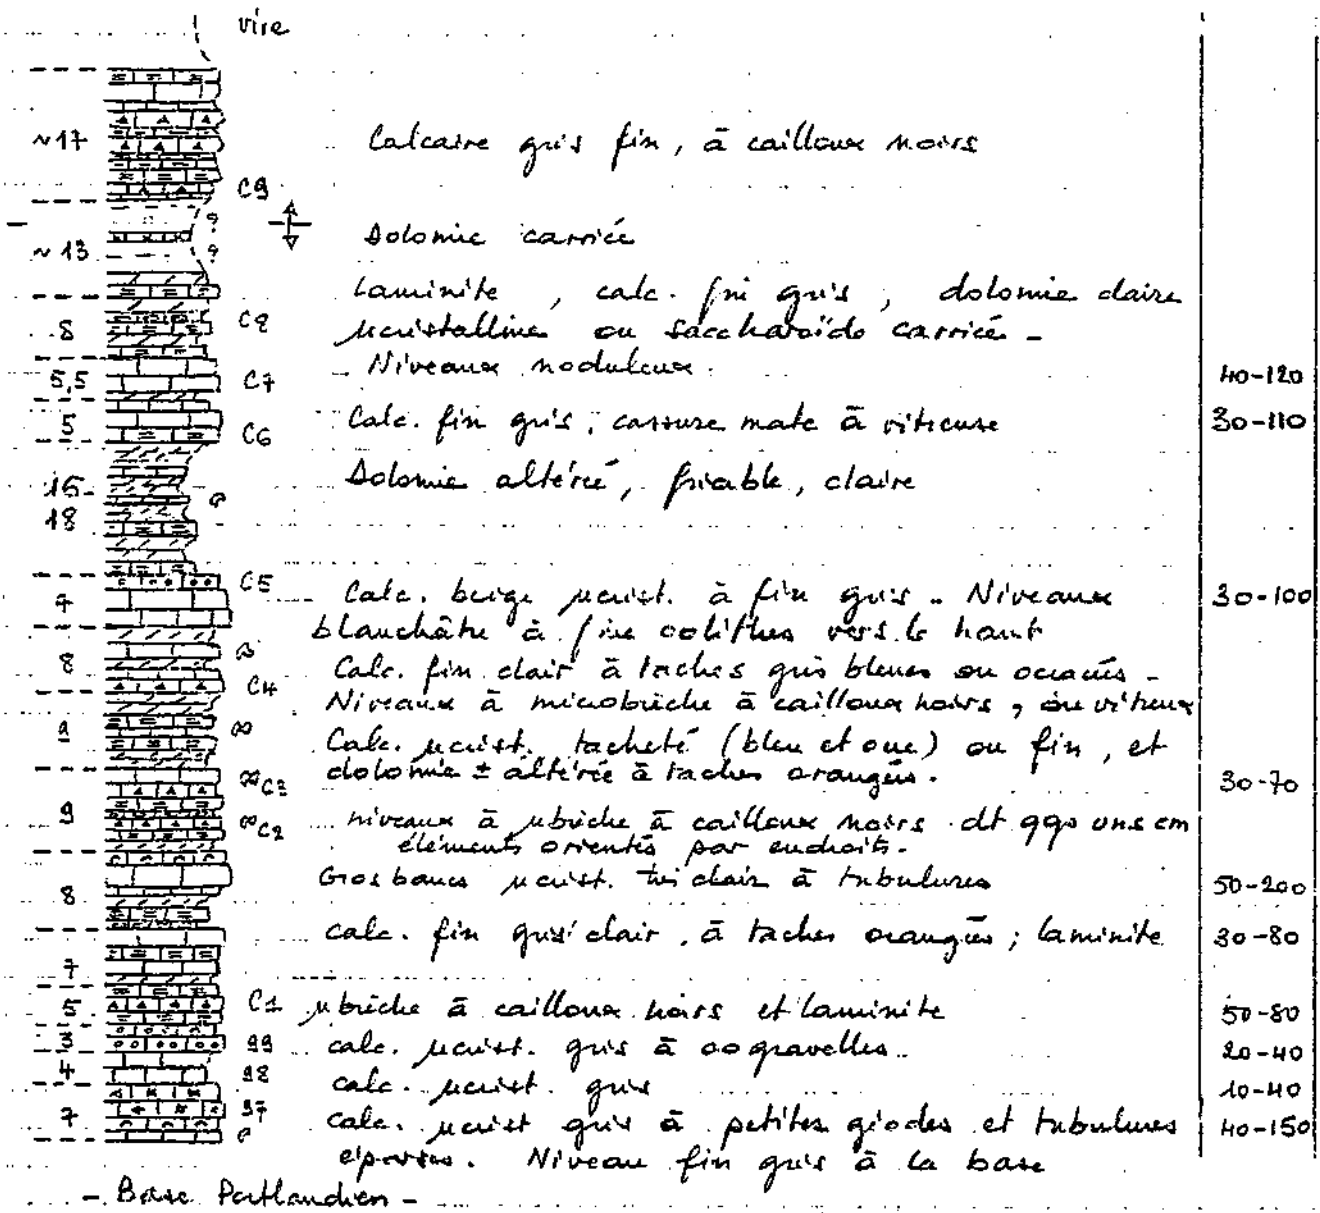 vire
~17 Calcaire gris fin, à cailloux noirs
C9
~13 Dolomie carriée
? ?
Laminite, calc. fin gris, dolomie claire
8 C8 µcristalline ou saccharoïde carriée -
- Niveaux noduleux.
5,5 C7 40-120
5 C6 Calc. fin gris, cassure mate à vitreuse 30-110
15-18 Dolomie altérée, friable, claire
C5
7 Calc. beige µcrist. à fin gris. Niveaux 30-100
blanchâtre à fine oolithes vers le haut
8 Calc. fin clair à taches gris bleues ou ocracées -
C4 Niveaux à microbrèche à cailloux noirs, ou vitreux
9 Calc. µcrist. tacheté (bleu et ocre) ou fin, et
dolomie ± altérée à taches orangées.
C3 30-70
9 C2 niveaux à µbrèche à cailloux noirs dt qqs uns cm
éléments orientés par endroits.
8 Gros bancs µcrist. très clair à tubulures 50-200
calc. fin gris clair, à taches orangées; laminite 30-80
7
5 C1 µbrèche à cailloux noirs et laminite 50-80
3 99 calc. µcrist. gris à oogravelles 20-40
4 98 calc. µcrist. gris 10-40
7 97 calc. µcrist gris à petites géodes et tubulures 40-150
éparses. Niveau fin gris à la base
- Base Portlandien -